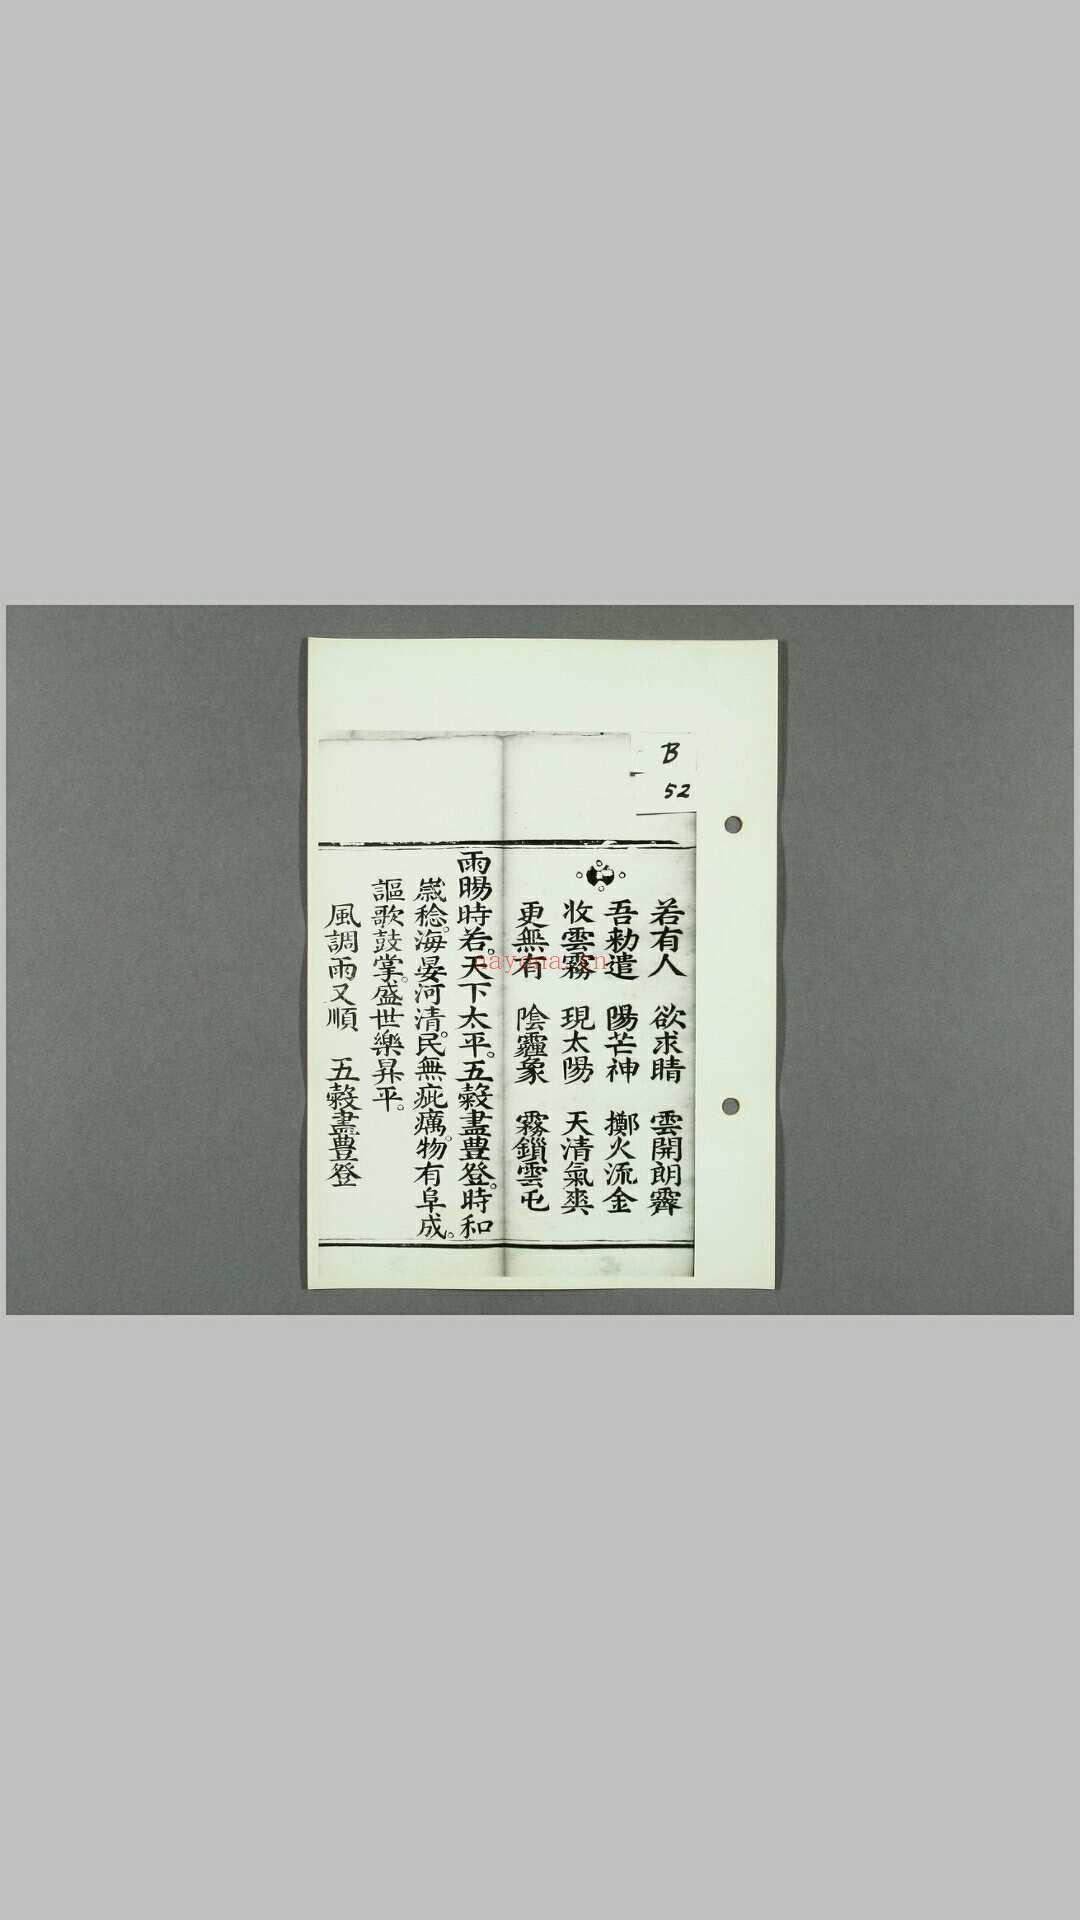 B
52
若有人　欲求晴　雲開朗霽
吾勑遣　陽芒神　擲火流金
收雲霧　現太陽　天清氣爽
更無有　陰霾象　霧鎖雲屯
雨暘時若。天下太平。五穀盡豊登。時和
嵗稔。海晏河清。民無疵癘。物有阜成。
謳歌鼓掌。盛世樂昇平。
風調雨又順　五穀盡豊登
nayona.cn